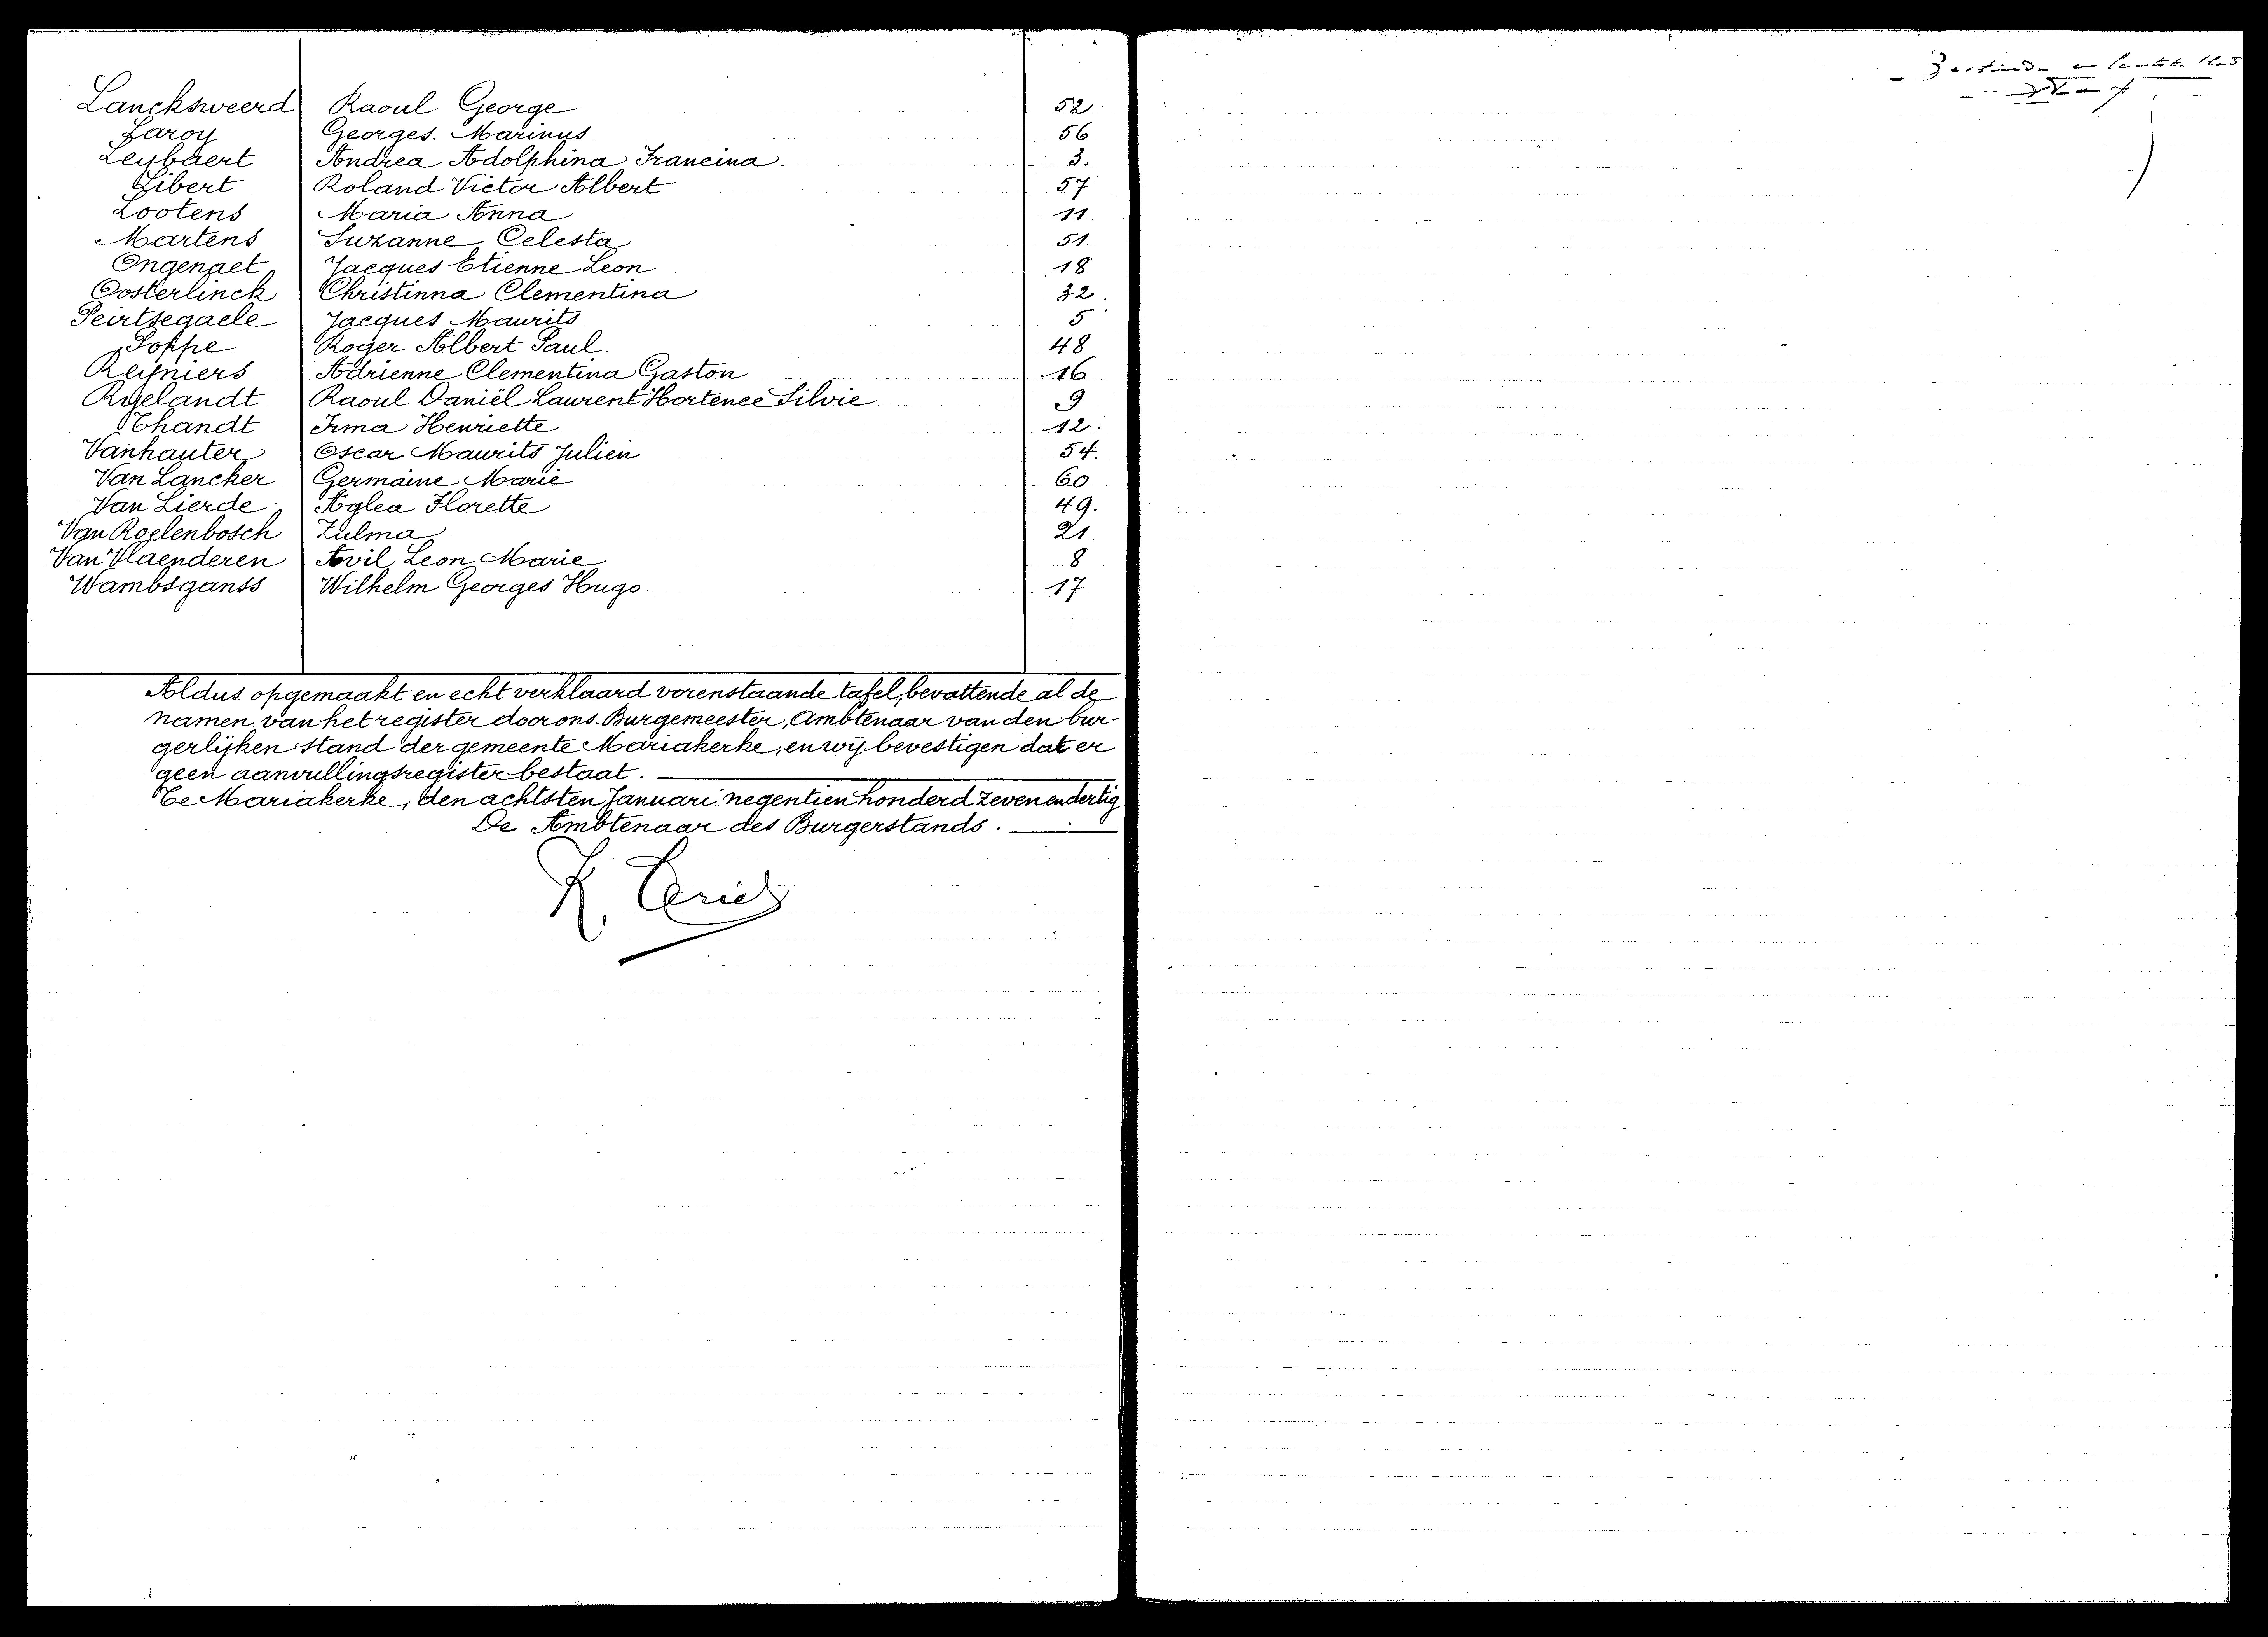 Lancksweerd Raoul George 52
Laroy Georges Marinus 56
Leybaert Andrea Adolphina Francina 3.
Libert Roland Victor Albert 57
Lootens Maria Anna 11
Martens Suzanne Celesta 51.
Ongenaet Jacques Etienne Leon 18
Oosterlinck Christinna Clementina 32.
Peirtsegaele Jacques Maurits 5
Poppe Roger Albert Paul. 48
Reyniers Adrienne Clementina Gaston 16
Roelandt Raoul Daniël Laurent Hortence Silvie 9
Thandt Irma Henriette 12.
Vanhauter Oscar Maurits Julien 54.
Van Lancker Germaine Marie 60
Van Lierde Aglea Florette 49.
Van Roelenbosch Zulma 21.
Van Vlaenderen Avil Leon Marie 8
Wambsganss Wilhelm Georges Hugo. 17
Aldus opgemaakt en echt verklaard vorenstaande tafel, bevattende al de
namen van het register door ons Burgemeester, Ambtenaar van den bur-
gerlijken stand der gemeente Mariakerke, en wij bevestigen dat er
geen aanvullingsregister bestaat.
Te Mariakerke, den achtsten Januari negentien honderd zeven en dertig
De Ambtenaar des Burgerstands.